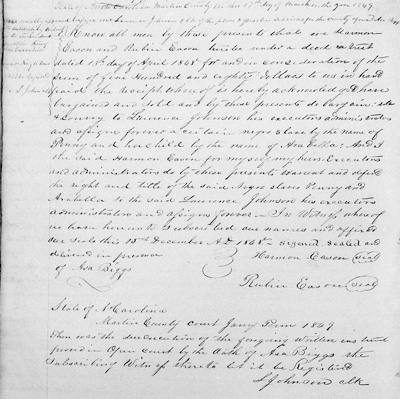 State of North Carolina Martin County
Know all men by these presents that we Harmon
Eason and Rubin Eason trustee under a deed in trust
dated 18th day of April 1848 for and in consideration of the
sum of five Hundred and eighty dollars to us in hand
paid the receipt where of is hereby acknowledged have
bargained and sold and by these presents do bargain sell
& convey to Lawrence Johnson his executors administrators
and assigns forever a certain negro slave by the name of
Penny and her child by the name of Arabella: And I
the said Harmon Eason for myself my heirs Executors
and administrators do by these presents warrant and defend
the right and title of the said Negro slaves Penny and
Arabella to the said Lawrence Johnson his executors
administrators and assigns forever – In Witness where of
we have hereunto subscribed our names and affixed
our seals this 15th December AD 1848 – signed sealed and
delivered in presence Harmon Eason seal
of Asa Biggs
Rubin Eason seal
State of N Carolina
Martin County court Jany Term 1849
Then was the execution of the foregoing written instrument
proved in Open court by the Oath of Asa Biggs the
subscribing Witness thereto let it be Registered
L Johnson clk